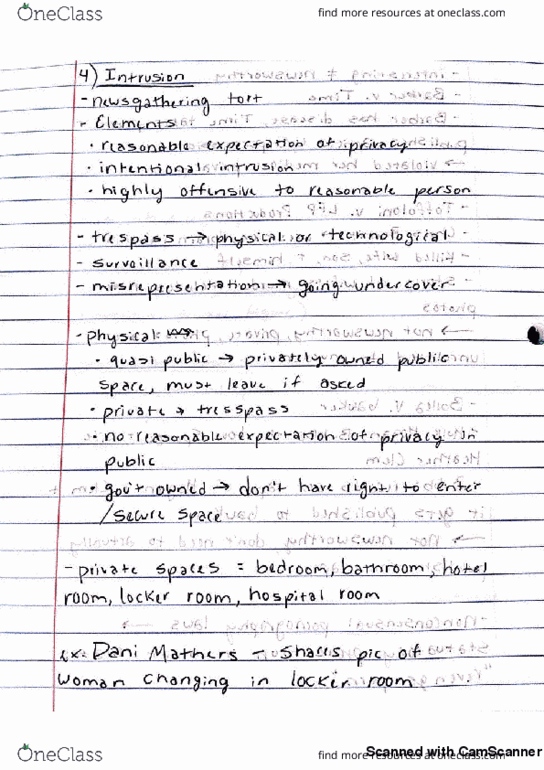 OneClass
find more resources at oneclass.com
4) Intrusion
- newsgathering tort
- Elements
• reasonable expectation of privacy
• intentional intrusion
• highly offensive to reasonable person
- trespass → physical or technological
- surveillance
- misrepresentation → going undercover
- physical:
• quasi public → privately owned public
space, must leave if asked
• private → tresspass
• no reasonable expectation of privacy in
public
• gov't owned → don't have right to enter
/secure space
- private spaces = bedroom, bathroom, hotel
room, locker room, hospital room
ex: Dani Mathers - shares pic of
woman changing in locker room
OneClass
find more resources at oneclass.com
Scanned with CamScanner